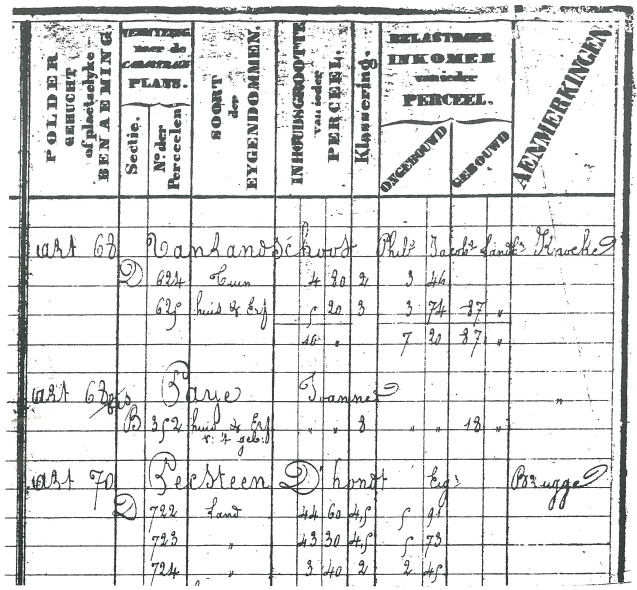 POLDER GEHUCHT of plaetselyke BENAEMING.
VERWYZING naer de CADASTRALE PLANS.
Sectie.
No. der Perceelen
SOORT der EYGENDOMMEN.
INHOUDSGROOTTE van ieder PERCEEL.
Klassering.
BELASTBAER INKOMEN van ieder PERCEEL.
ONGEBOUWD
GEBOUWD
AENMERKINGEN.
art 68 Vanlandschoot Phils Jacobs Landb. Knocke
D 624 Tuin 4 80 2 3 46
625 huis & Erf 5 20 3 3 74 87 "
10 " 7 20 87 "
art 68bis Barje Joannes "
B 352 huis & Erf " " 8 " " 18 "
v: 't geb:
art 70 Peesteen D'hondt Eigr Brugge
D 722 Land 44 60 4,5 5 91
723 " 43 30 4,5 5 73
724 " 3 40 2 2 45